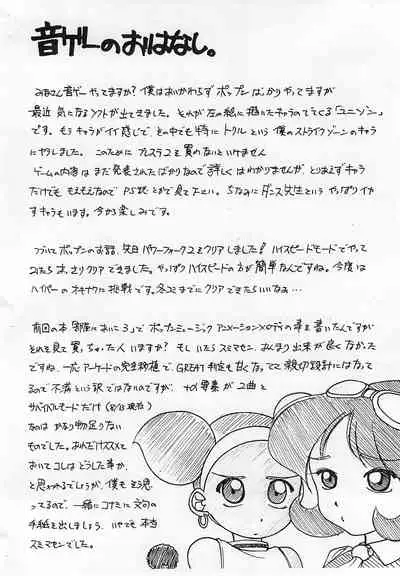 音ゲーのおはなし。
みなさん音ゲーやってますか？僕はあいかわらずポップンばかりやってますが
最近気になるソフトが出てきました。それが左の絵に描いたキャラのでてくる「ユニゾン」
です。もうキャラがイイ感じで、その中でも特にトクルという僕のストライクゾーンのキャラ
にヤラレました。このためにプレステ2を買わないといけません
ゲームの内容はまだ発表されたばかりなので詳しくはわかりませんが、とりあえずキャラ
だけでももえもえなのでP.S誌とかで見て下さい。ちなみにダンス先生というやっぱりイカ
すキャラもいます。今から楽しみです。
つづいてポップンのお話、先日パワーフォーク2をクリアしました！ハイスピードモードでやって
みたら、あっさりクリアできました。やっぱハイスピードの方が簡単なんですね。今度は
ハイパーのオキナワに挑戦です。冬コミまでにクリアできたらいいなぁ…
前回の本「　　におこる」でポップンミュージックアニメーションメロディの事を書いたんですが
それを見て買っちゃった人いますか？もしいたらスミマセン。あんまり出来が良くなかった
ですね、一応アーケードの完全移植で、GREAT判定も甘くなってて親切設計にはなって
るので不満という訳ではないのですが、　　要素が2曲と
サバイバルモードだけ（8/13現在）
なのはかなり物足りない
ものでした。あれだけススメて
おいてコレはどうした事か、
と思われるでしょうが、僕もそう思
ってるので、一緒にコナミに文句の
手紙を出しましょう。いやでも本当
スミマセンでした。